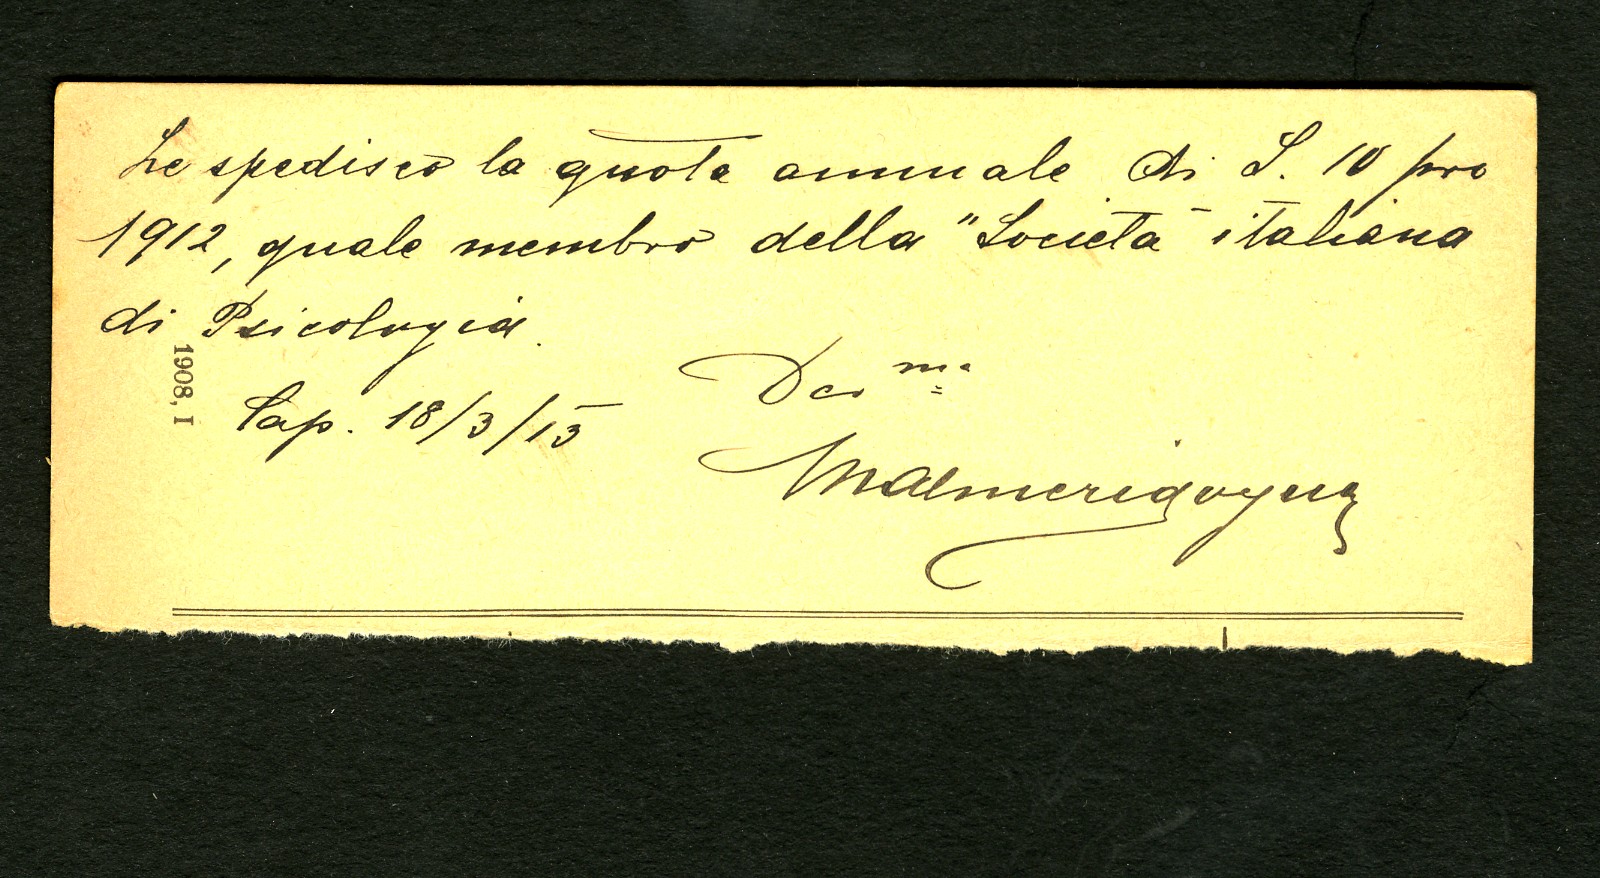 Le spedisco la quota annuale di L. 10 pro
1912, quale membro della "Società italiana
di Psicologia.
1908, I
Cap. 18/3/13
Dev ma